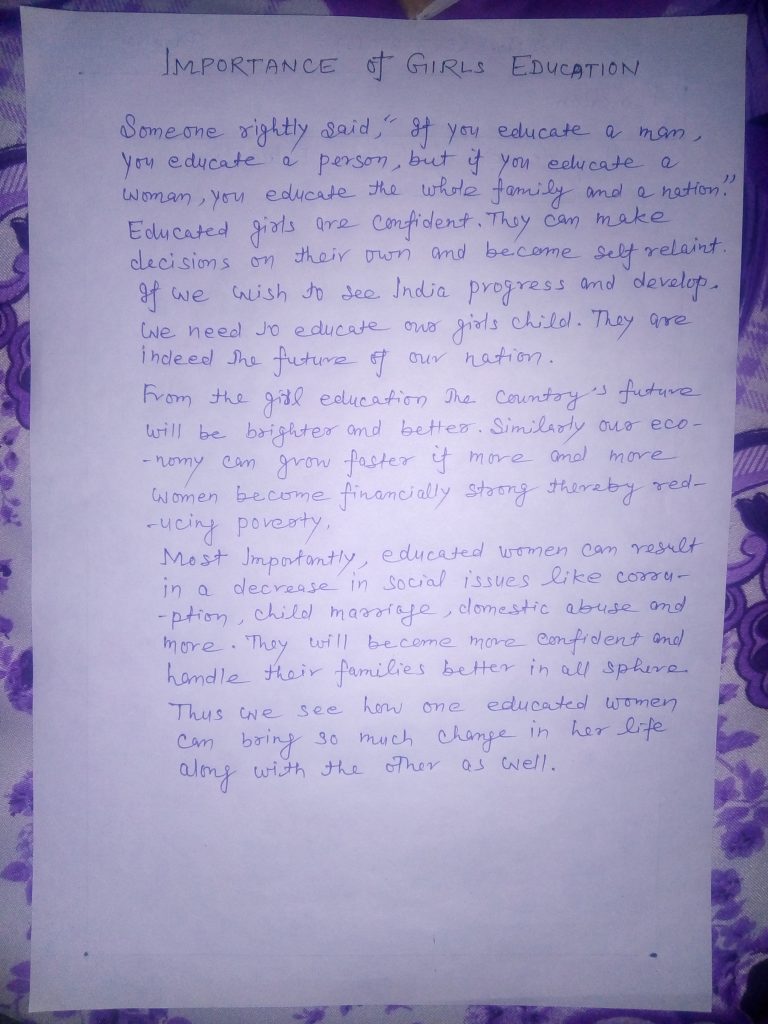 IMPORTANCE of GIRLS EDUCATION
Someone rightly said, " If you educate a man,
you educate a person, but if you educate a
woman, you educate the whole family and a nation."
Educated girls are confident. They can make
decisions on their own and become self relaint.
If we wish to see India progress and develop.
we need to educate our girls child. They are
indeed the future of our nation.
From the girl education the country's future
will be brighter and better. Similarly our eco-
-nomy can grow faster if more and more
women become financially strong thereby red-
-ucing poverty.
Most Importantly, educated women can result
in a decrease in social issues like corru-
-ption, child marriage, domestic abuse and
more. They will become more confident and
handle their families better in all sphere.
Thus we see how one educated women
can bring so much change in her life
along with the other as well.